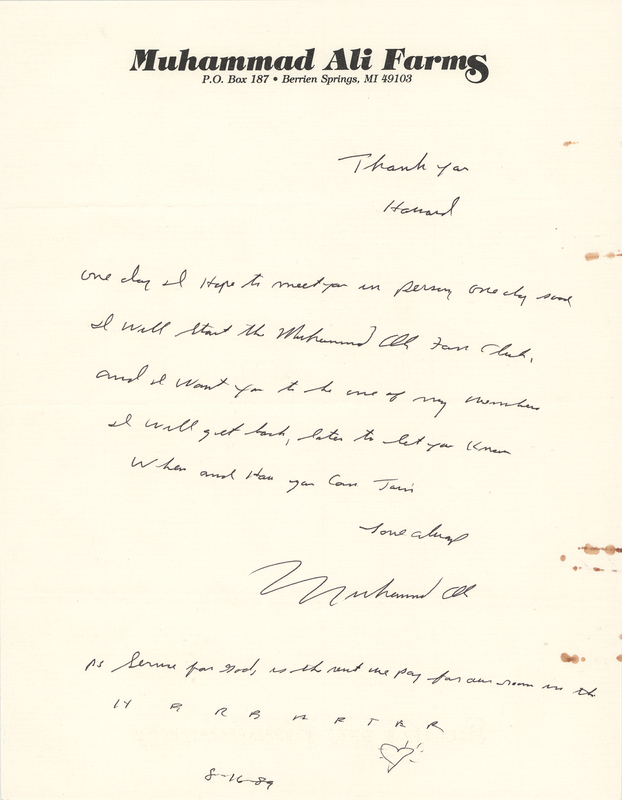 Muhammad Ali Farms
P.O. Box 187 • Berrien Springs, MI 49103
Thank you
Howard
one day I Hope to meet you in person one day soon
I Will start the Muhammad Ali Fan Club,
and I Want you to be one of my members
I Will get back, later to let you Know
When and How you Can Join
Love always
Muhammad Ali
PS Service for God, is the rent we pay for our room in the
8-16-89